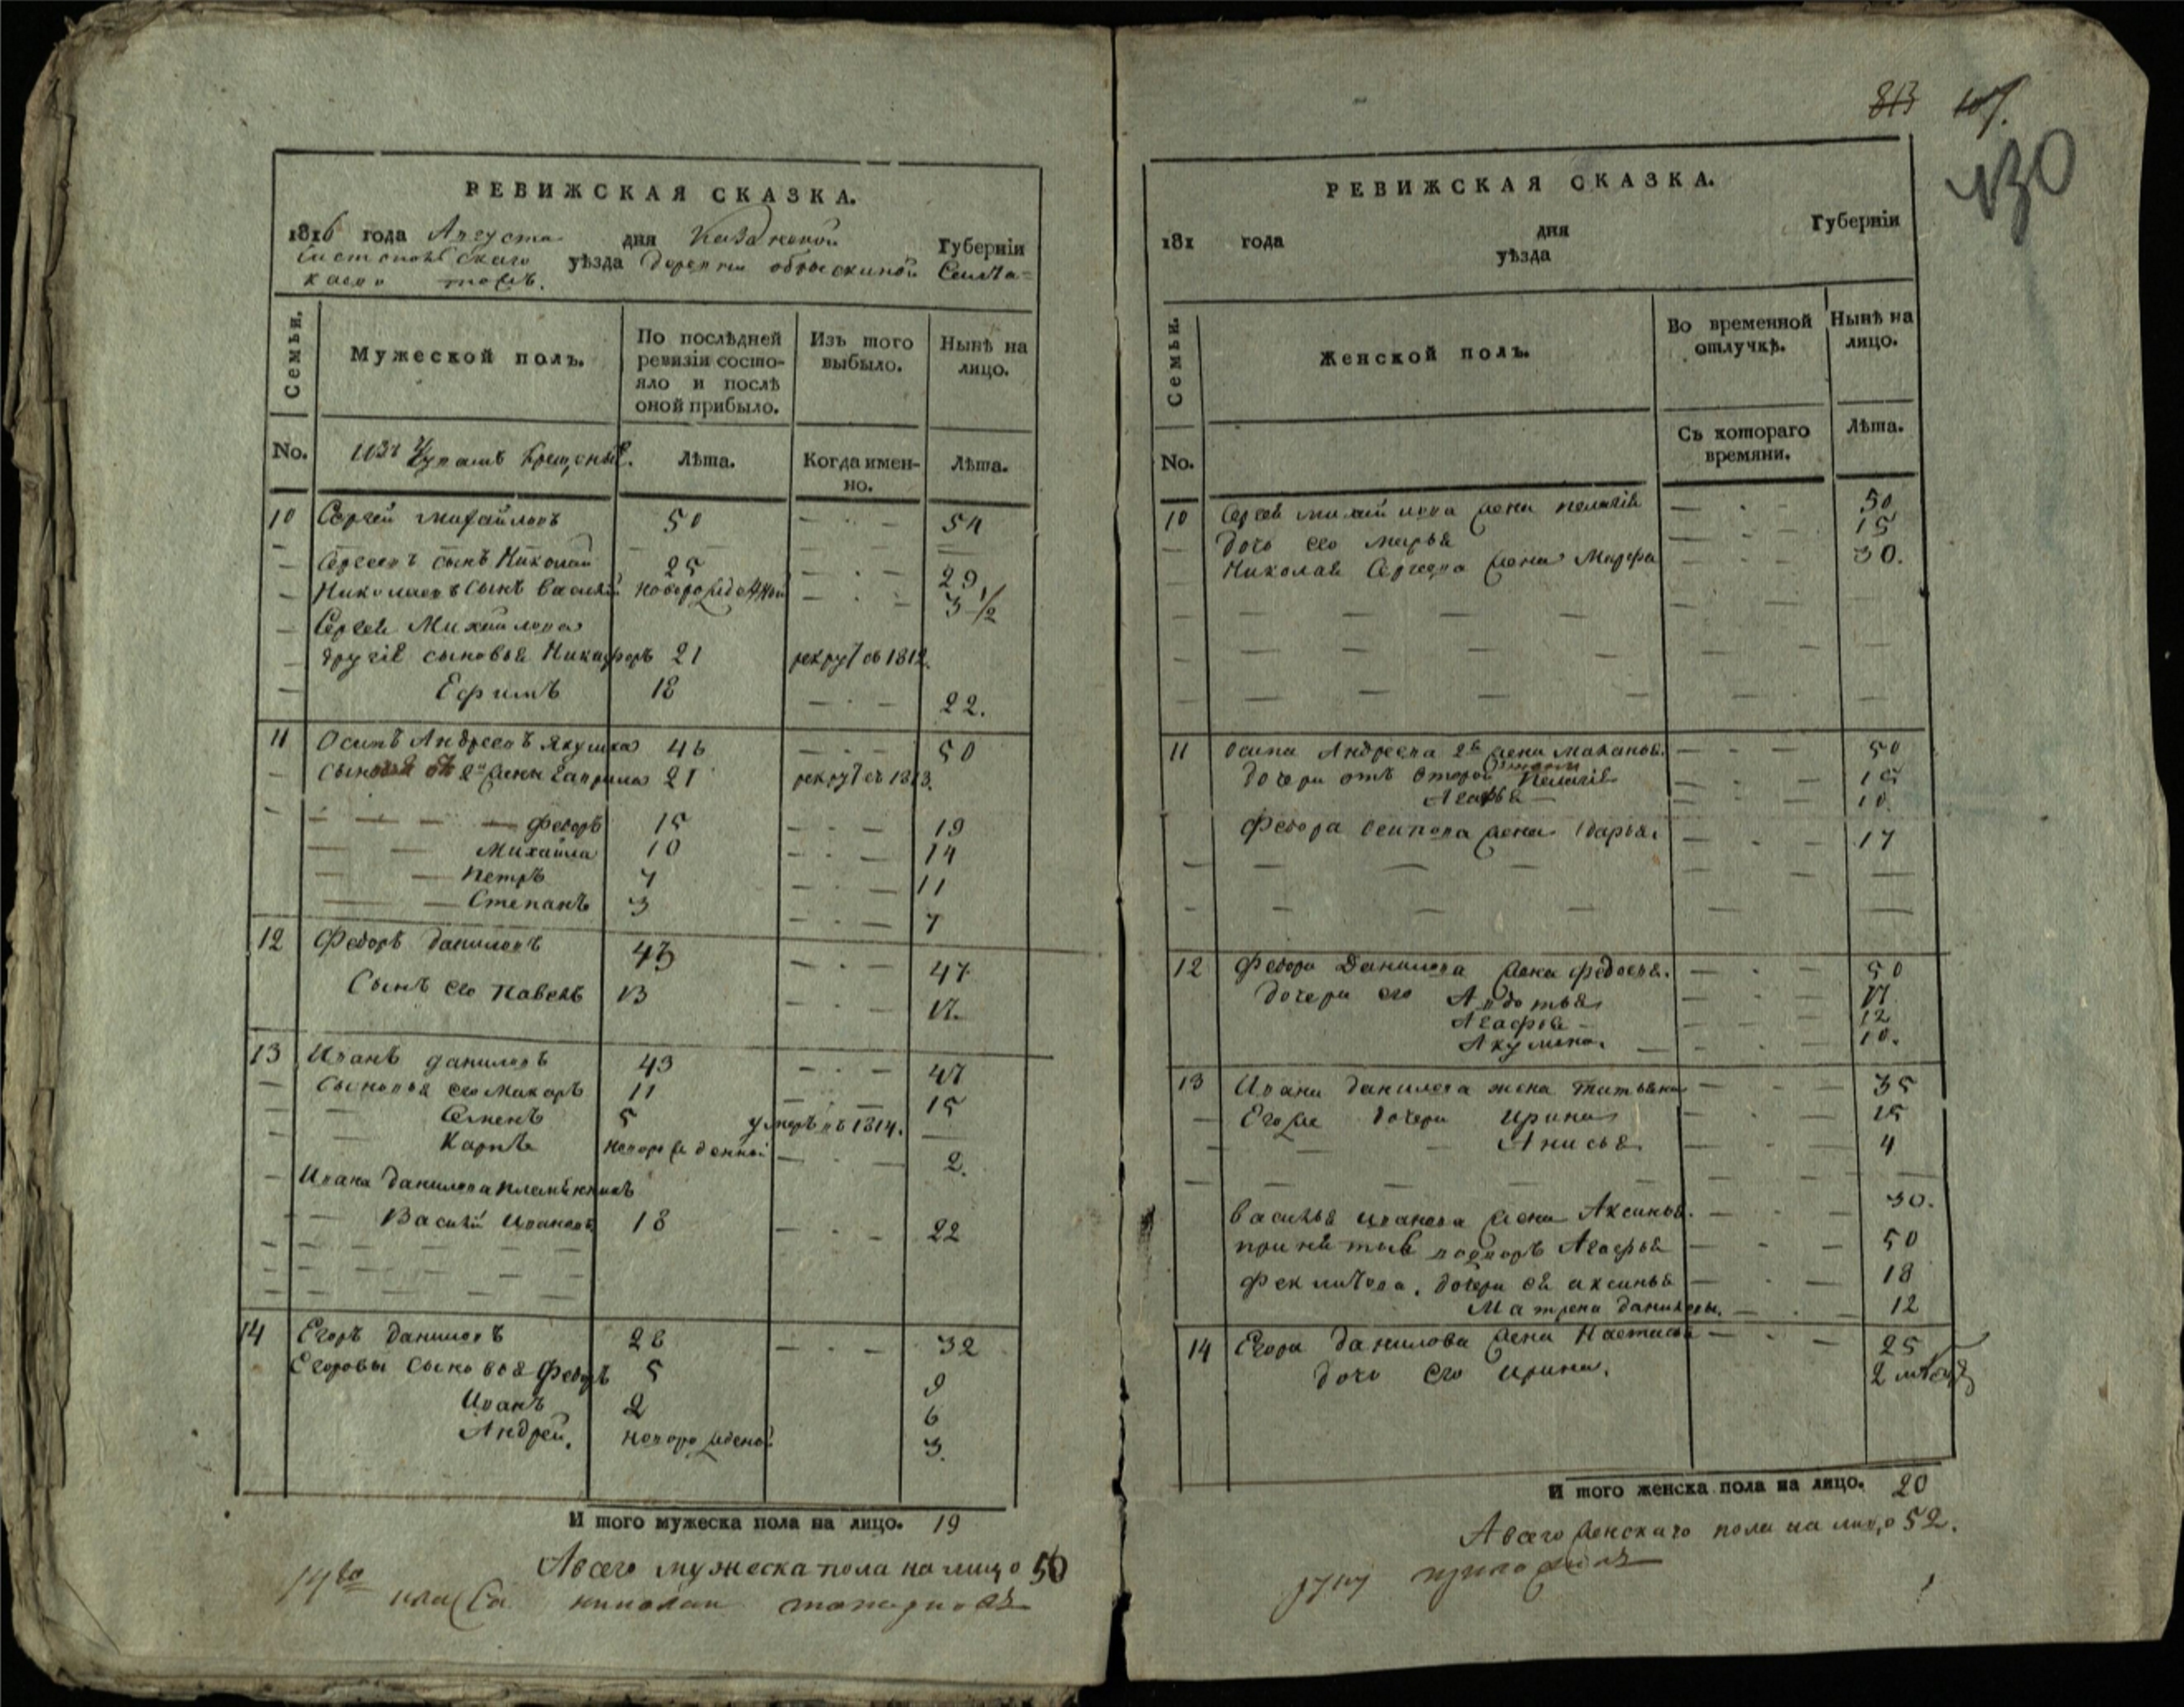 РЕВИЖСКАЯ СКАЗКА.
1816 года Августа дня Казанской Губерніи
уѣзда деревни
Семьи. Мужеской полъ. По послѣдней ревизіи состояло и послѣ оной прибыло. Изъ того выбыло. Нынѣ на лицо.
No. Изъ Чувашъ крещеные. Лѣта. Когда именно. Лѣта.
10 Сергей Михайловъ 50 — · — 54
Сергеевъ сынъ Николай 25 — · — 29
Николаевъ сынъ Василій новорожденной — · — 3 1/2
Сергея Михайлова
другіе сыновья Никифоръ 21 рекрут въ 1812.
Ефимъ 18 — · — 22.
11 Осипъ Андреевъ Якушка 46 — · — 50
Сыновья от 2й жены Гаврила 21 рекрут въ 1813.
Федоръ 15 — · — 19
Михайла 10 — · — 14
Петръ 7 — · — 11
Степанъ 3 — · — 7
12 Федоръ Даниловъ 43 — · — 47
Сынъ его Павелъ 13 — · — 17.
13 Иванъ Даниловъ 43 — · — 47
Сыновья его Макаръ 11 — · — 15
Семенъ 5 умеръ въ 1814. —
Карпъ новорожденной — · — 2.
Ивана Данилова племянникъ
Василій Ивановъ 18 — · — 22
14 Егоръ Даниловъ 28 — · — 32
Егоровы сыновья Федоръ 5 9
Иванъ 2 6
Андрей. новорожденой 3.
И того мужеска пола на лицо. 19
А всего мужеска пола на лицо 50
14го класса николай
813 107.
130
РЕВИЖСКАЯ СКАЗКА.
181 года дня Губерніи
уѣзда
Семьи. Женской полъ. Во временной отлучкѣ. Нынѣ на лицо.
No. Съ котораго времяни. Лѣта.
10 Сергея Михайлова жена Пелагія — · — 50
дочь его Марья — · — 15
Николая Сергеева жена Марфа — · — 30.
11 Осипа Андреева 2я жена Маланья. — · — 50
дочери отъ второй жены Пелагія — · — 15
Агафья — · — 10.
Федора Осипова жена Дарья. — · — 17
12 Федора Данилова жена Федосья. — · — 50
дочери его Авдотья — · — 17
Агафья — · — 12
Акулина. — · — 10.
13 Ивана Данилова жена Татьяна — · — 35
Его же дочери Ирина — · — 15
Анисья — · — 4
Василья Иванова жена Аксинья. — · — 30.
Агафья — · — 50
дочери ея Аксинья — · — 18
Матрена Даниловы. — · — 12
14 Егора Данилова жена Настасья — · — 25
дочь его Ирина. 2 месяц
И того женска пола на лицо. 20
А всего женскаго пола на лицо 52.